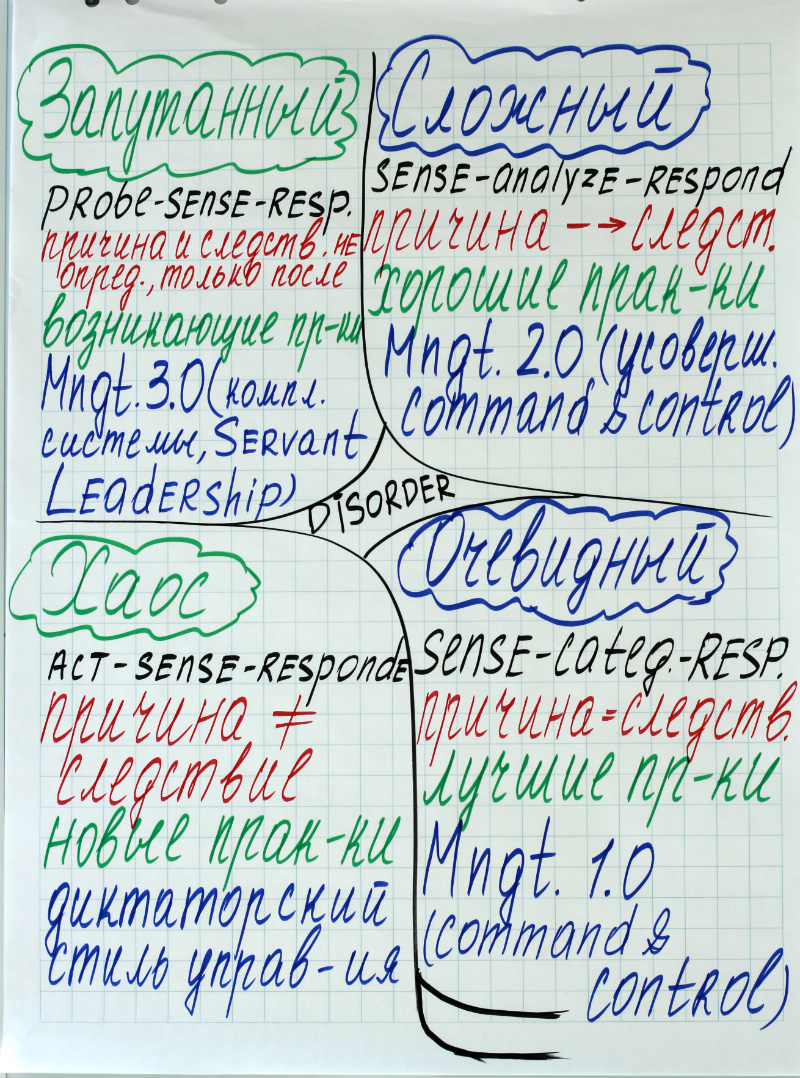 Запутанный
PRObe-SEnSE-RESp.
причина и следств. не
опред., только после
возникающие пр-ки
Mngt. 3.0 (компл.
системы, SERvant
LEAdERShip)
Сложный
SEnSE-analyzE-RESpond
причина --→ следст.
хорошие прак-ки
Mngt. 2.0 (усоверш.
command & contROl)
DiSORDER
Хаос
ACT-SEnSE-RESpondE
причина ≠
следствие
новые прак-ки
диктаторский
стиль управ-ия
Очевидный
SEnSE-categ.-RESP.
причина=следств.
лучшие пр-ки
Mngt. 1.0
(command &
contROl)